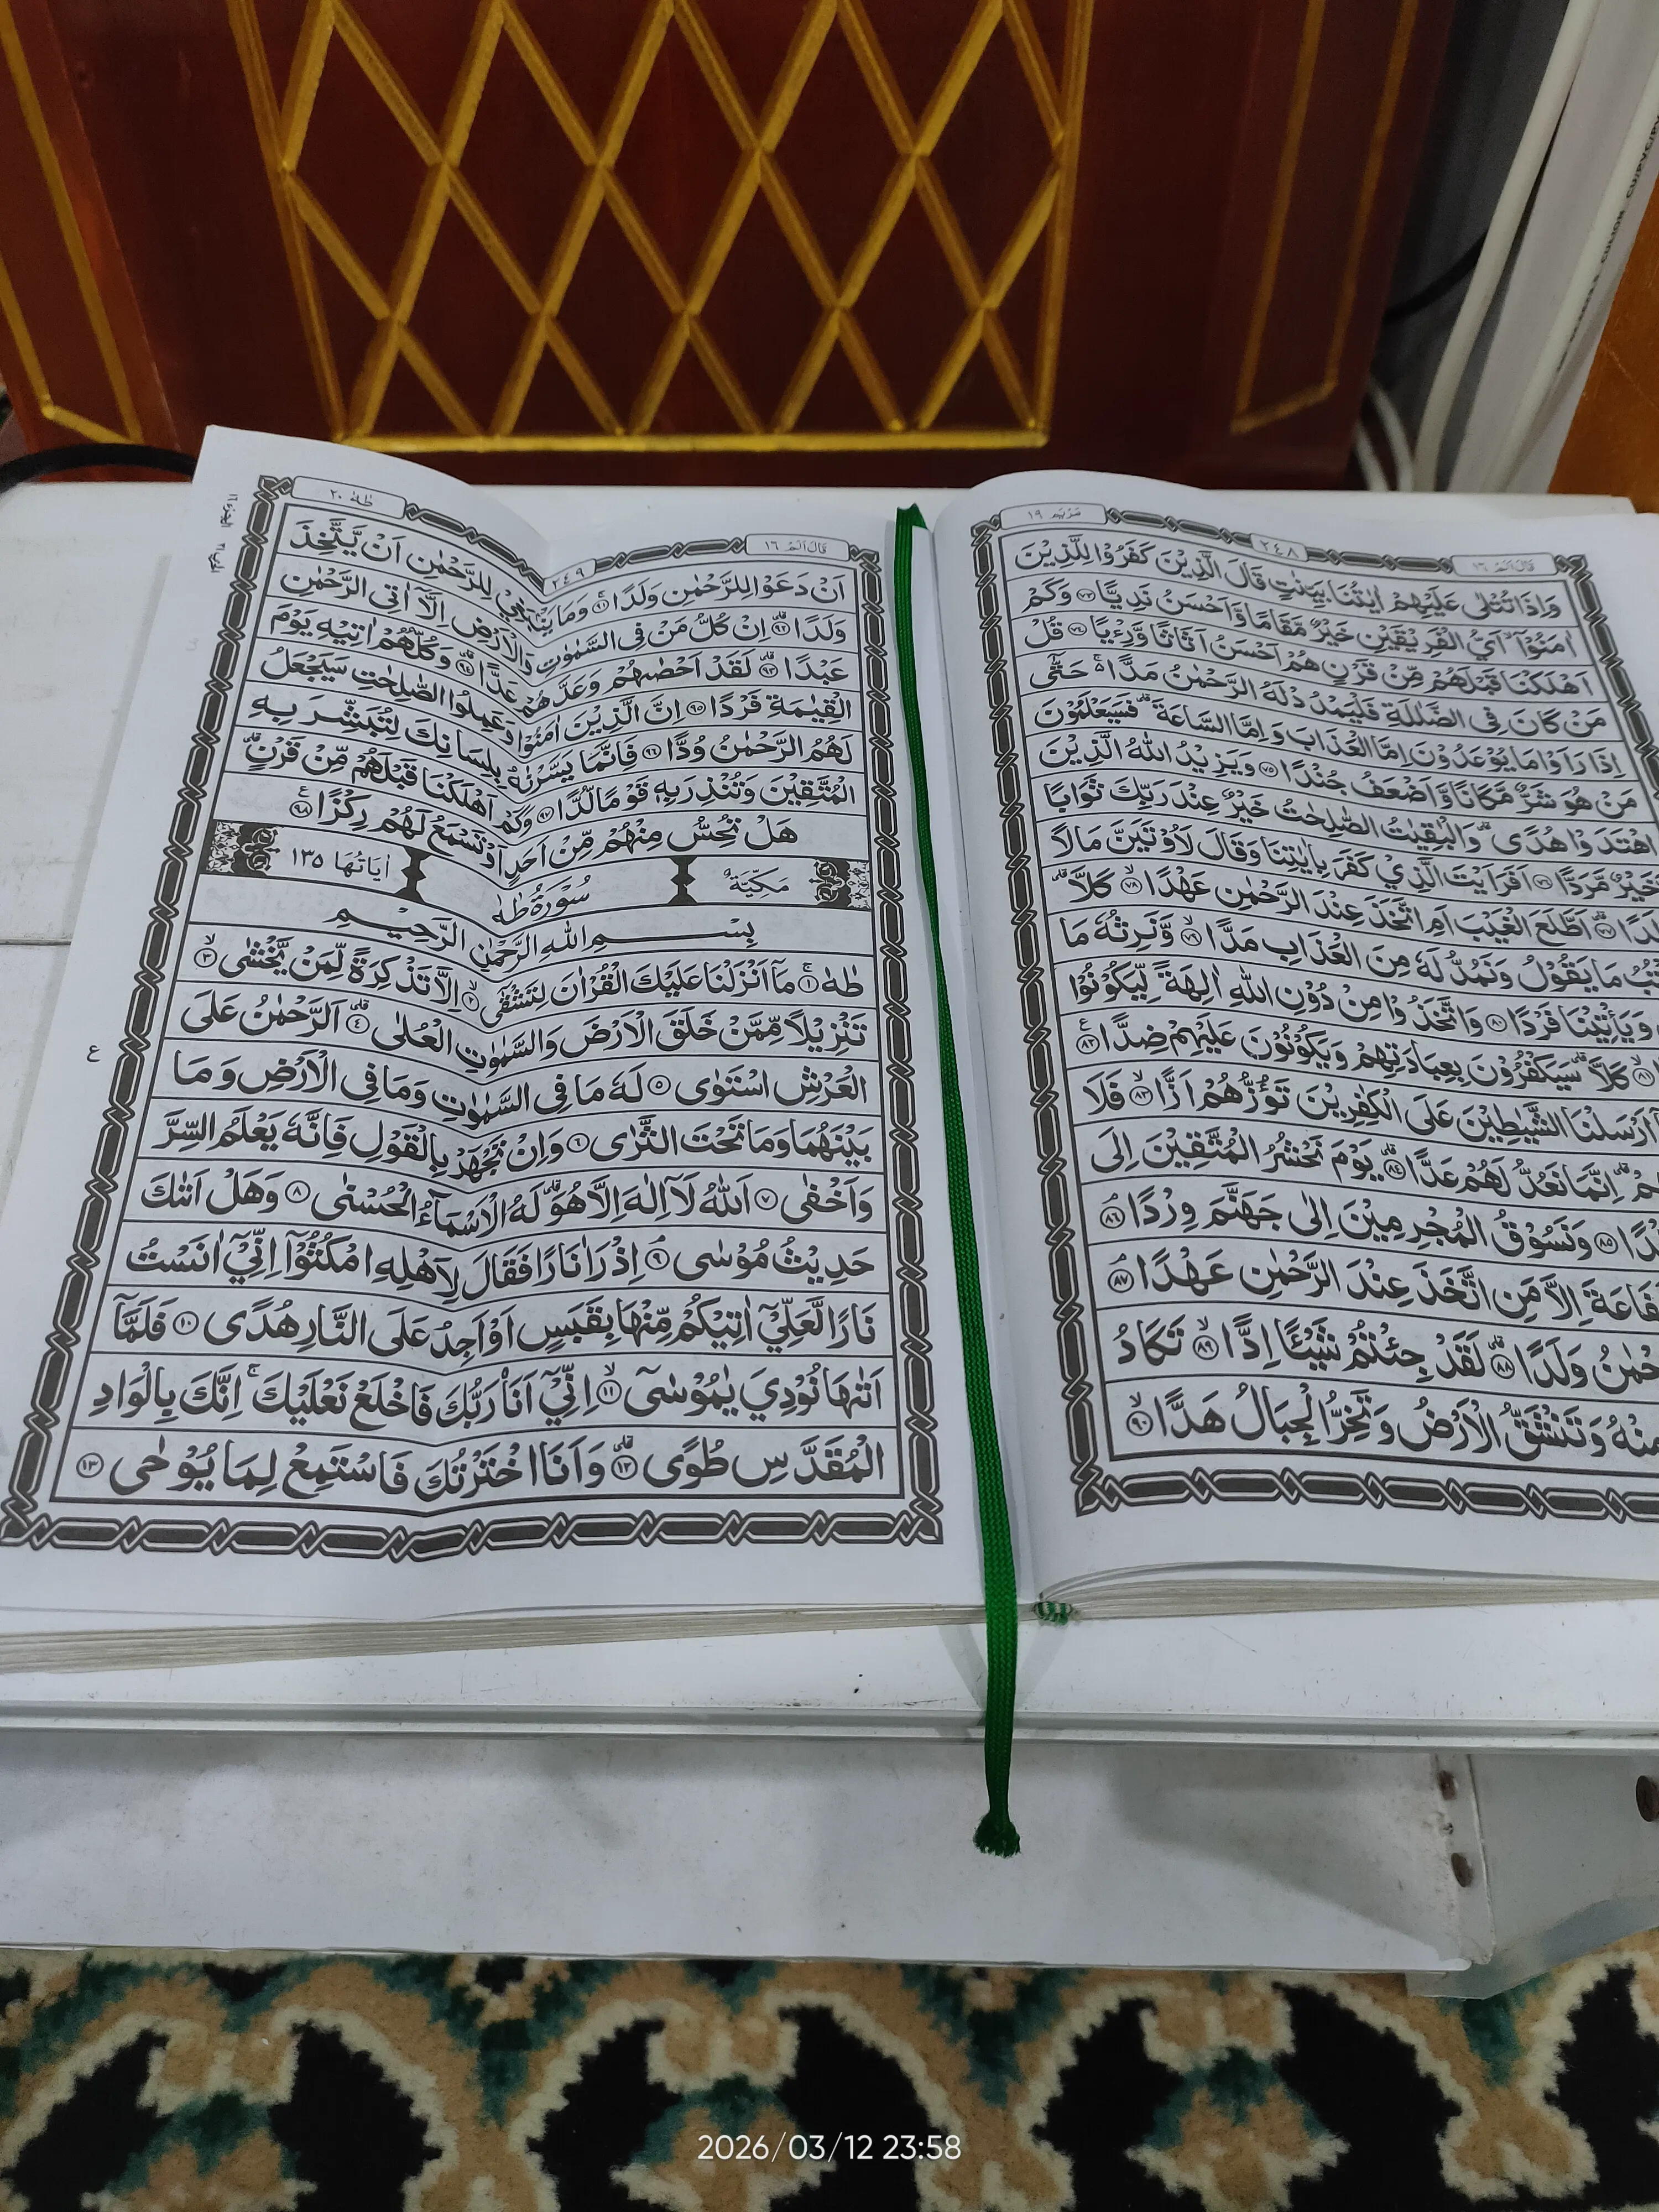 مريم ١٩
٢٤٨
قال الم ١٦
وَاِذَا تُتْلٰى عَلَيْهِمْ اٰيٰتُنَا بَيِّنٰتٍ قَالَ الَّذِيْنَ كَفَرُوْا لِلَّذِيْنَ
اٰمَنُوْٓا ۙ اَيُّ الْفَرِيْقَيْنِ خَيْرٌ مَّقَامًا وَّاَحْسَنُ نَدِيًّا ٧٣ وَكَمْ
اَهْلَكْنَا قَبْلَهُمْ مِّنْ قَرْنٍ هُمْ اَحْسَنُ اَثَاثًا وَّرِءْيًا ٧٤ قُلْ
مَنْ كَانَ فِى الضَّلٰلَةِ فَلْيَمْدُدْ لَهُ الرَّحْمٰنُ مَدًّا ۚ حَتّٰٓى
اِذَا رَاَوْا مَا يُوْعَدُوْنَ اِمَّا الْعَذَابَ وَاِمَّا السَّاعَةَ ۗ فَسَيَعْلَمُوْنَ
مَنْ هُوَ شَرٌّ مَّكَانًا وَّاَضْعَفُ جُنْدًا ٧٥ وَيَزِيْدُ اللّٰهُ الَّذِيْنَ
اهْتَدَوْا هُدًى ۗ وَالْبٰقِيٰتُ الصّٰلِحٰتُ خَيْرٌ عِنْدَ رَبِّكَ ثَوَابًا
خَيْرٌ مَّرَدًّا ٧٦ اَفَرَاَيْتَ الَّذِيْ كَفَرَ بِاٰيٰتِنَا وَقَالَ لَاُوْتَيَنَّ مَالًا
٧٧ اَطَّلَعَ الْغَيْبَ اَمِ اتَّخَذَ عِنْدَ الرَّحْمٰنِ عَهْدًا ٧٨ كَلَّا ۗ
مَا يَقُوْلُ وَنَمُدُّ لَهٗ مِنَ الْعَذَابِ مَدًّا ٧٩ وَّنَرِثُهٗ مَا
وَيَأْتِيْنَا فَرْدًا ٨٠ وَاتَّخَذُوْا مِنْ دُوْنِ اللّٰهِ اٰلِهَةً لِّيَكُوْنُوْا
٨١ كَلَّا ۗ سَيَكْفُرُوْنَ بِعِبَادَتِهِمْ وَيَكُوْنُوْنَ عَلَيْهِمْ ضِدًّا ٨٢
اَرْسَلْنَا الشَّيٰطِيْنَ عَلَى الْكٰفِرِيْنَ تَؤُزُّهُمْ اَزًّا ٨٣ فَلَا
اِنَّمَا نَعُدُّ لَهُمْ عَدًّا ٨٤ يَوْمَ نَحْشُرُ الْمُتَّقِيْنَ اِلَى
٨٥ وَنَسُوْقُ الْمُجْرِمِيْنَ اِلٰى جَهَنَّمَ وِرْدًا ٨٦
اِلَّا مَنِ اتَّخَذَ عِنْدَ الرَّحْمٰنِ عَهْدًا ٨٧
وَلَدًا ٨٨ لَقَدْ جِئْتُمْ شَيْـًٔا اِدًّا ٨٩ تَكَادُ
مِنْهُ وَتَنْشَقُّ الْاَرْضُ وَتَخِرُّ الْجِبَالُ هَدًّا ٩٠
طٰهٰ ٢٠
٢٤٩
قال الم ١٦
اَنْ دَعَوْا لِلرَّحْمٰنِ وَلَدًا ٩١ وَمَا يَنْۢبَغِيْ لِلرَّحْمٰنِ اَنْ يَّتَّخِذَ
وَلَدًا ٩٢ اِنْ كُلُّ مَنْ فِى السَّمٰوٰتِ وَالْاَرْضِ اِلَّآ اٰتِى الرَّحْمٰنِ
عَبْدًا ٩٣ لَقَدْ اَحْصٰىهُمْ وَعَدَّهُمْ عَدًّا ٩٤ وَكُلُّهُمْ اٰتِيْهِ يَوْمَ
الْقِيٰمَةِ فَرْدًا ٩٥ اِنَّ الَّذِيْنَ اٰمَنُوْا وَعَمِلُوا الصّٰلِحٰتِ سَيَجْعَلُ
لَهُمُ الرَّحْمٰنُ وُدًّا ٩٦ فَاِنَّمَا يَسَّرْنٰهُ بِلِسَانِكَ لِتُبَشِّرَ بِهِ
الْمُتَّقِيْنَ وَتُنْذِرَ بِهٖ قَوْمًا لُّدًّا ٩٧ وَكَمْ اَهْلَكْنَا قَبْلَهُمْ مِّنْ قَرْنٍ ۗ
هَلْ تُحِسُّ مِنْهُمْ مِّنْ اَحَدٍ اَوْ تَسْمَعُ لَهُمْ رِكْزًا ٩٨
مَكِّيَّةٌ سُوْرَةُ طٰهٰ اٰيَاتُهَا ١٣٥
بِسْمِ اللّٰهِ الرَّحْمٰنِ الرَّحِيْمِ
طٰهٰ ١ مَآ اَنْزَلْنَا عَلَيْكَ الْقُرْاٰنَ لِتَشْقٰٓى ٢ اِلَّا تَذْكِرَةً لِّمَنْ يَّخْشٰى ٣
تَنْزِيْلًا مِّمَّنْ خَلَقَ الْاَرْضَ وَالسَّمٰوٰتِ الْعُلٰى ٤ اَلرَّحْمٰنُ عَلَى
الْعَرْشِ اسْتَوٰى ٥ لَهٗ مَا فِى السَّمٰوٰتِ وَمَا فِى الْاَرْضِ وَمَا
بَيْنَهُمَا وَمَا تَحْتَ الثَّرٰى ٦ وَاِنْ تَجْهَرْ بِالْقَوْلِ فَاِنَّهٗ يَعْلَمُ السِّرَّ
وَاَخْفٰى ٧ اَللّٰهُ لَآ اِلٰهَ اِلَّا هُوَ ۗ لَهُ الْاَسْمَآءُ الْحُسْنٰى ٨ وَهَلْ اَتٰىكَ
حَدِيْثُ مُوْسٰى ٩ اِذْ رَاٰ نَارًا فَقَالَ لِاَهْلِهِ امْكُثُوْٓا اِنِّيْٓ اٰنَسْتُ
نَارًا لَّعَلِّيْٓ اٰتِيْكُمْ مِّنْهَا بِقَبَسٍ اَوْ اَجِدُ عَلَى النَّارِ هُدًى ١٠ فَلَمَّآ
اَتٰىهَا نُوْدِيَ يٰمُوْسٰٓى ١١ اِنِّيْٓ اَنَا۠ رَبُّكَ فَاخْلَعْ نَعْلَيْكَ ۚ اِنَّكَ بِالْوَادِ
الْمُقَدَّسِ طُوًى ١٢ وَاَنَا اخْتَرْتُكَ فَاسْتَمِعْ لِمَا يُوْحٰى ١٣
ع
2026/03/12 23:58